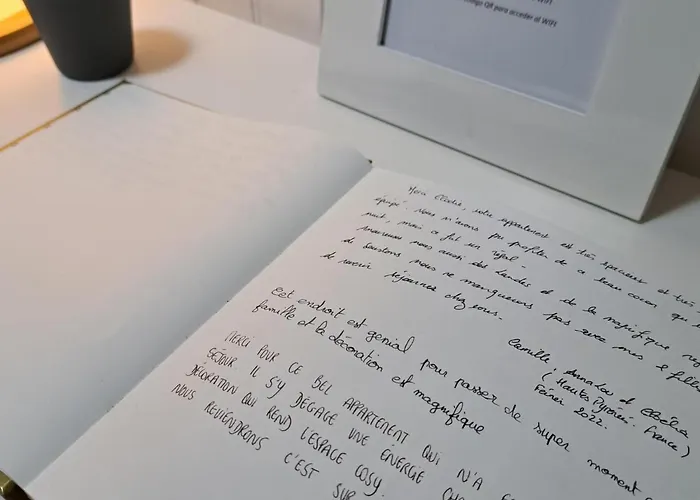 WIFI
código QR para acceder al WIFI
Merci Elodie, votre appartement est très spacieux et très
équipé. Nous n'avons pu profiter de ce beau cocon qu'
nuit, mais ce fut un régal -
nous aussi des Landes et de la magnifique
de Soustons nous ne manquerons pas avec mes
de venir séjourner chez vous.
Camille,
(Hautes Pyrénées. France)
Février 2022.
Cet endroit est genial pour passer de super moment
famille et la décoration est magnifique
MERCI POUR CE BEL APPARTEMENT QUI N'A
SEJOUR IL S'Y DÉGAGE UNE ÉNERGIE
DÉCORATION QUI REND L'ESPACE COSY.
NOUS REVIENDRONS C'EST SUR